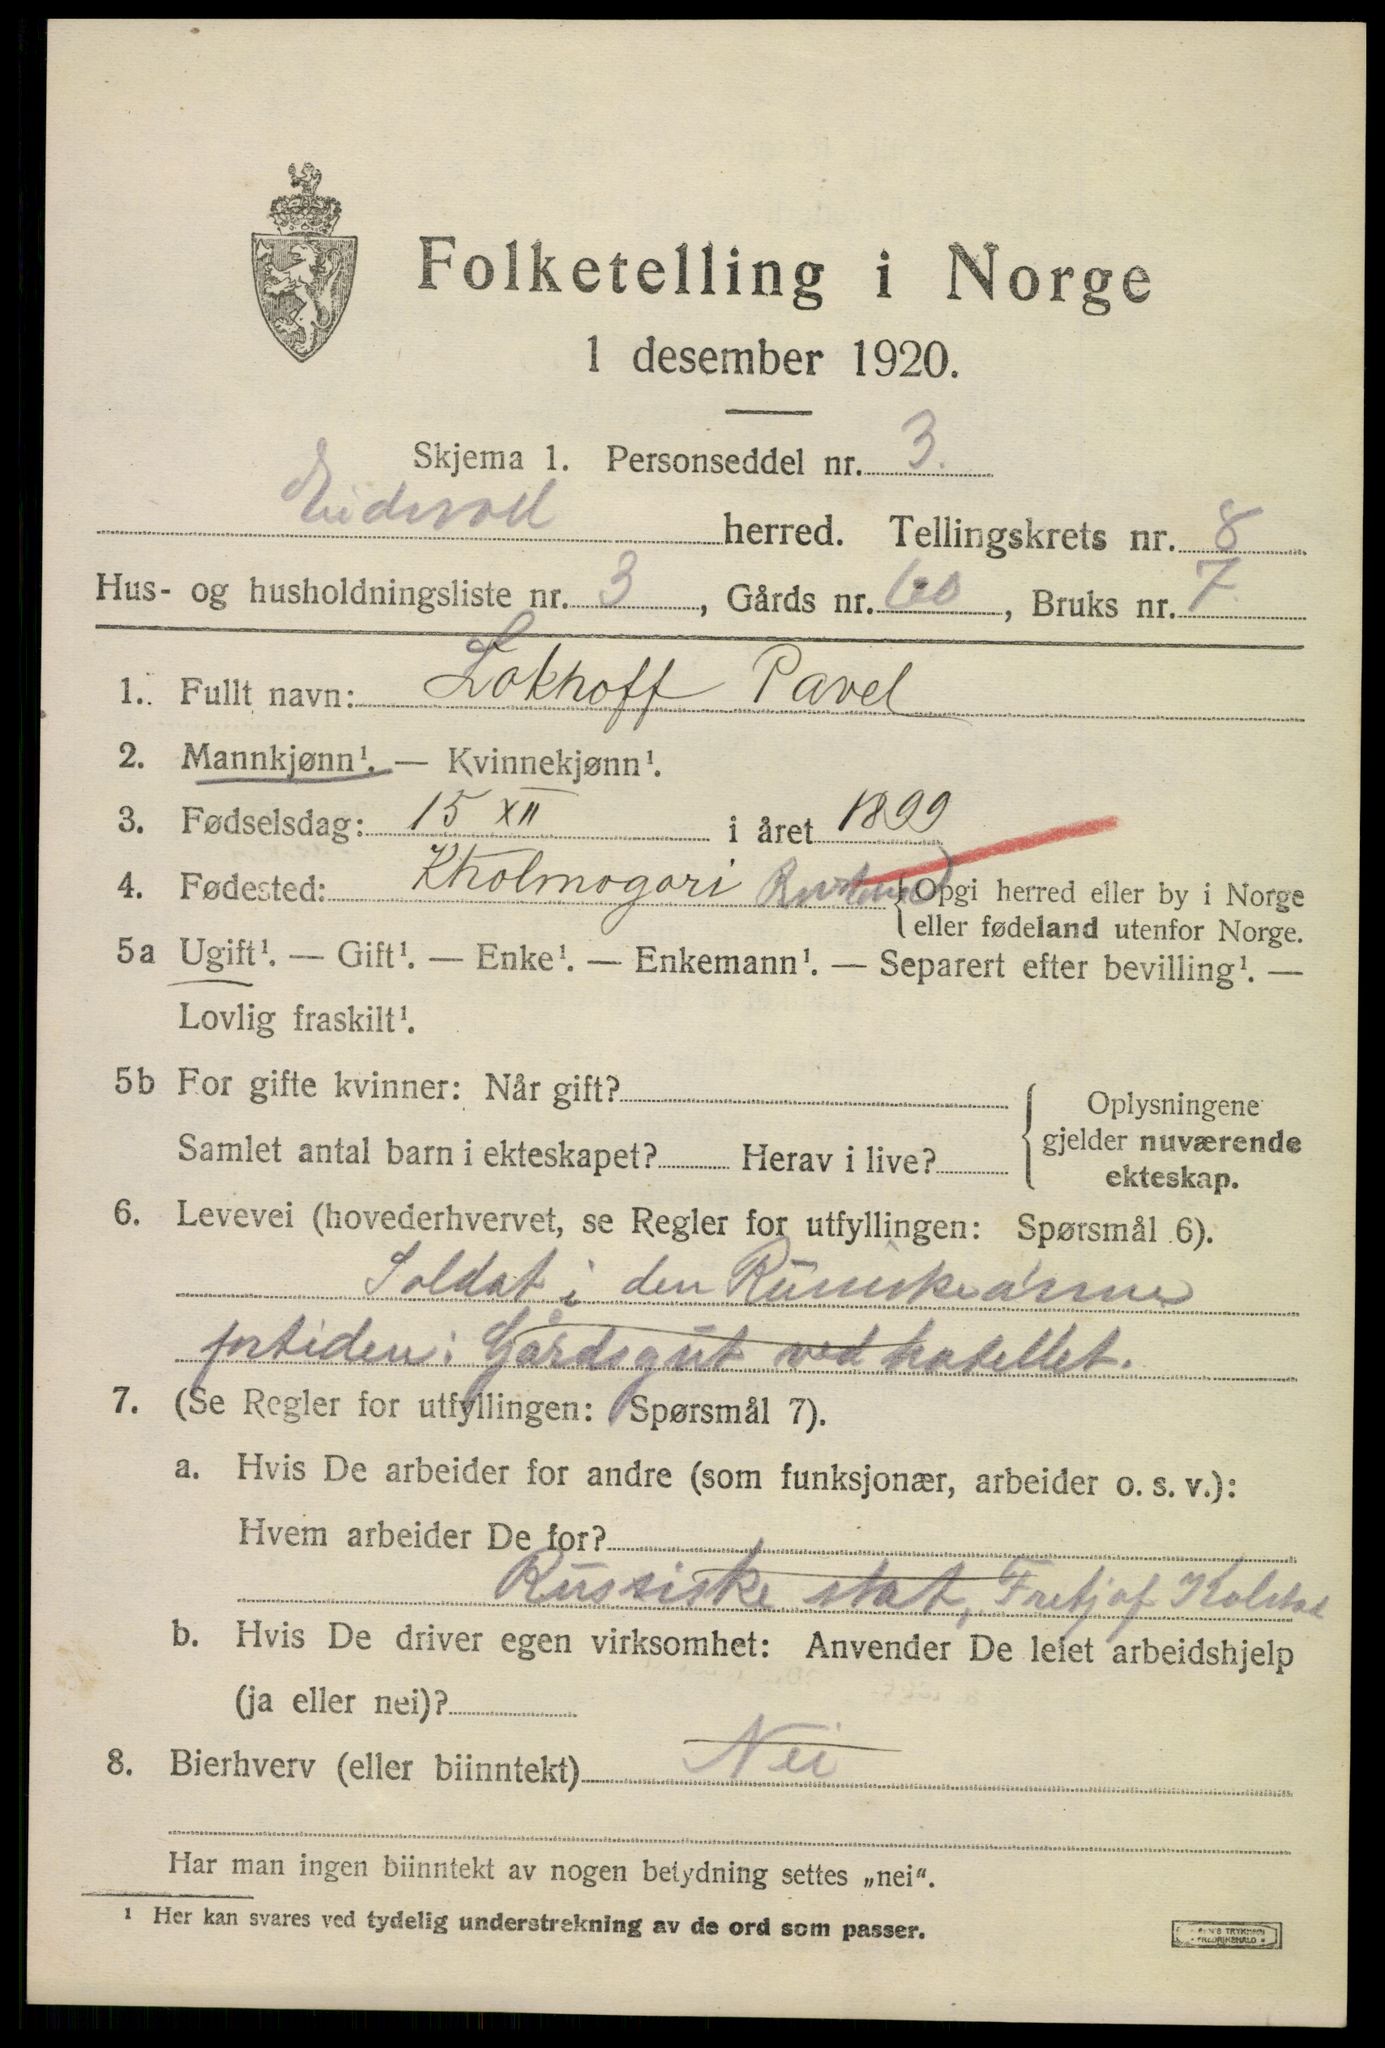 Folketelling i Norge
1 desember 1920.
Skjema 1. Personseddel nr. 3.
Eidsvoll herred. Tellingskrets nr. 8
Hus- og husholdningsliste nr. 3, Gårds nr. 60, Bruks nr. 7
1. Fullt navn: Lokhoff Pavel
2. Mannkjønn¹. — Kvinnekjønn¹.
3. Fødselsdag: 15 XII i året 1899
4. Fødested: Kholmogari Russland {Opgi herred eller by i Norge
eller fødeland utenfor Norge.
5a Ugift¹. — Gift¹. — Enke¹. — Enkemann¹. — Separert efter bevilling¹. —
Lovlig fraskilt¹.
5b For gifte kvinner: Når gift?
Samlet antal barn i ekteskapet? Herav i live?
Oplysningene
gjelder nuværende
ekteskap.
6. Levevei (hovederhvervet, se Regler for utfyllingen: Spørsmål 6).
Soldat i den Russiske arme
fortiden: Gårdsgut ved hotellet.
7. (Se Regler for utfyllingen: Spørsmål 7).
a. Hvis De arbeider for andre (som funksjonær, arbeider o. s. v.):
Hvem arbeider De for?
Russiske stat, Fretjof Kolstad
b. Hvis De driver egen virksomhet: Anvender De leiet arbeidshjelp
(ja eller nei)?
8. Bierhverv (eller biinntekt) Nei
Har man ingen biinntekt av nogen betydning settes „nei“.
¹ Her kan svares ved tydelig understrekning av de ord som passer.
TRYKKERI
FREDRIKSHALD